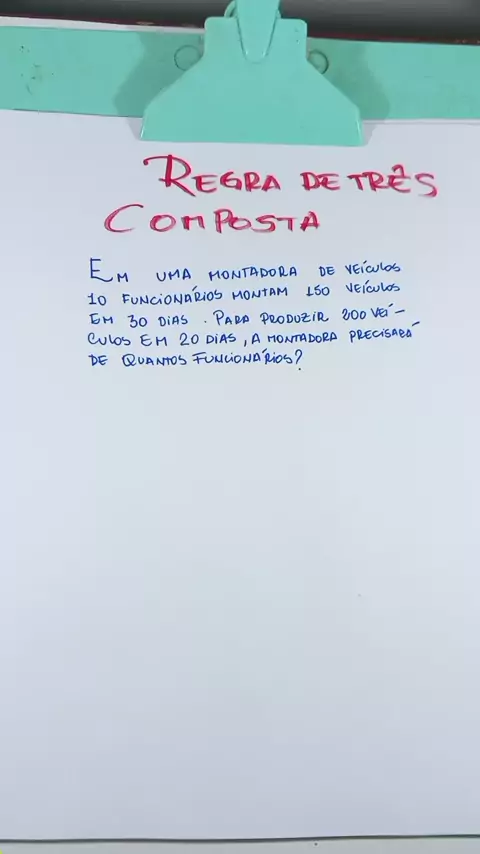 REGRA DE TRÊS
COMPOSTA
EM UMA MONTADORA DE VEÍCULOS
10 FUNCIONÁRIOS MONTAM 150 VEÍCULOS
EM 30 DIAS. PARA PRODUZIR 200 VEÍ-
CULOS EM 20 DIAS, A MONTADORA PRECISARÁ
DE QUANTOS FUNCIONÁRIOS?